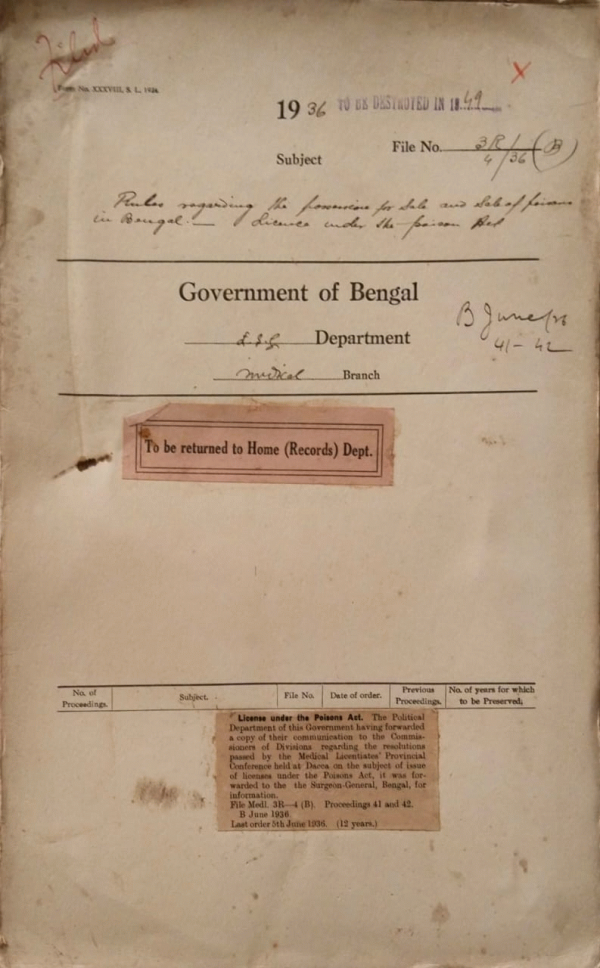 Filed
Form No. XXXVIII, S. L. 1934
X
1936 TO BE DESTROYED IN 1949
File No. 3R/4/36 (B)
Subject
Rules regarding the possession for Sale and Sale of poisons
in Bengal. — Licence under the poison Act
Government of Bengal
L.S.G. Department
B June/36
41-42
Medical Branch
To be returned to Home (Records) Dept.
No. of Proceedings. Subject. File No. Date of order. Previous Proceedings. No. of years for which to be Preserved.
License under the Poisons Act. The Political
Department of this Government having forwarded
a copy of their communication to the Commis-
sioners of Divisions regarding the resolutions
passed by the Medical Licentiates' Provincial
Conference held at Dacca on the subject of issue
of licenses under the Poisons Act, it was for-
warded to the the Surgeon-General, Bengal, for
information.
File Medl. 3R—4 (B). Proceedings 41 and 42.
B June 1936.
Last order 5th June 1936. (12 years.)